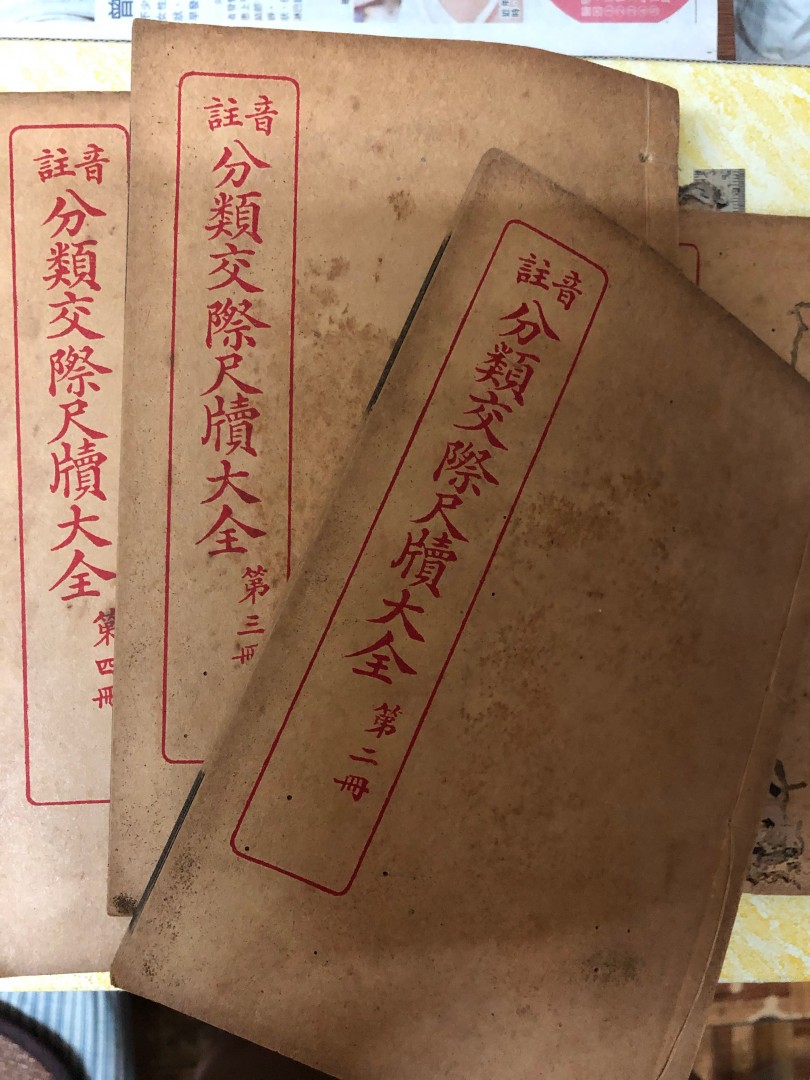 音註
分類交際尺牘大全
第二冊
音註
分類交際尺牘大全
第三冊
音註
分類交際尺牘大全
第四冊